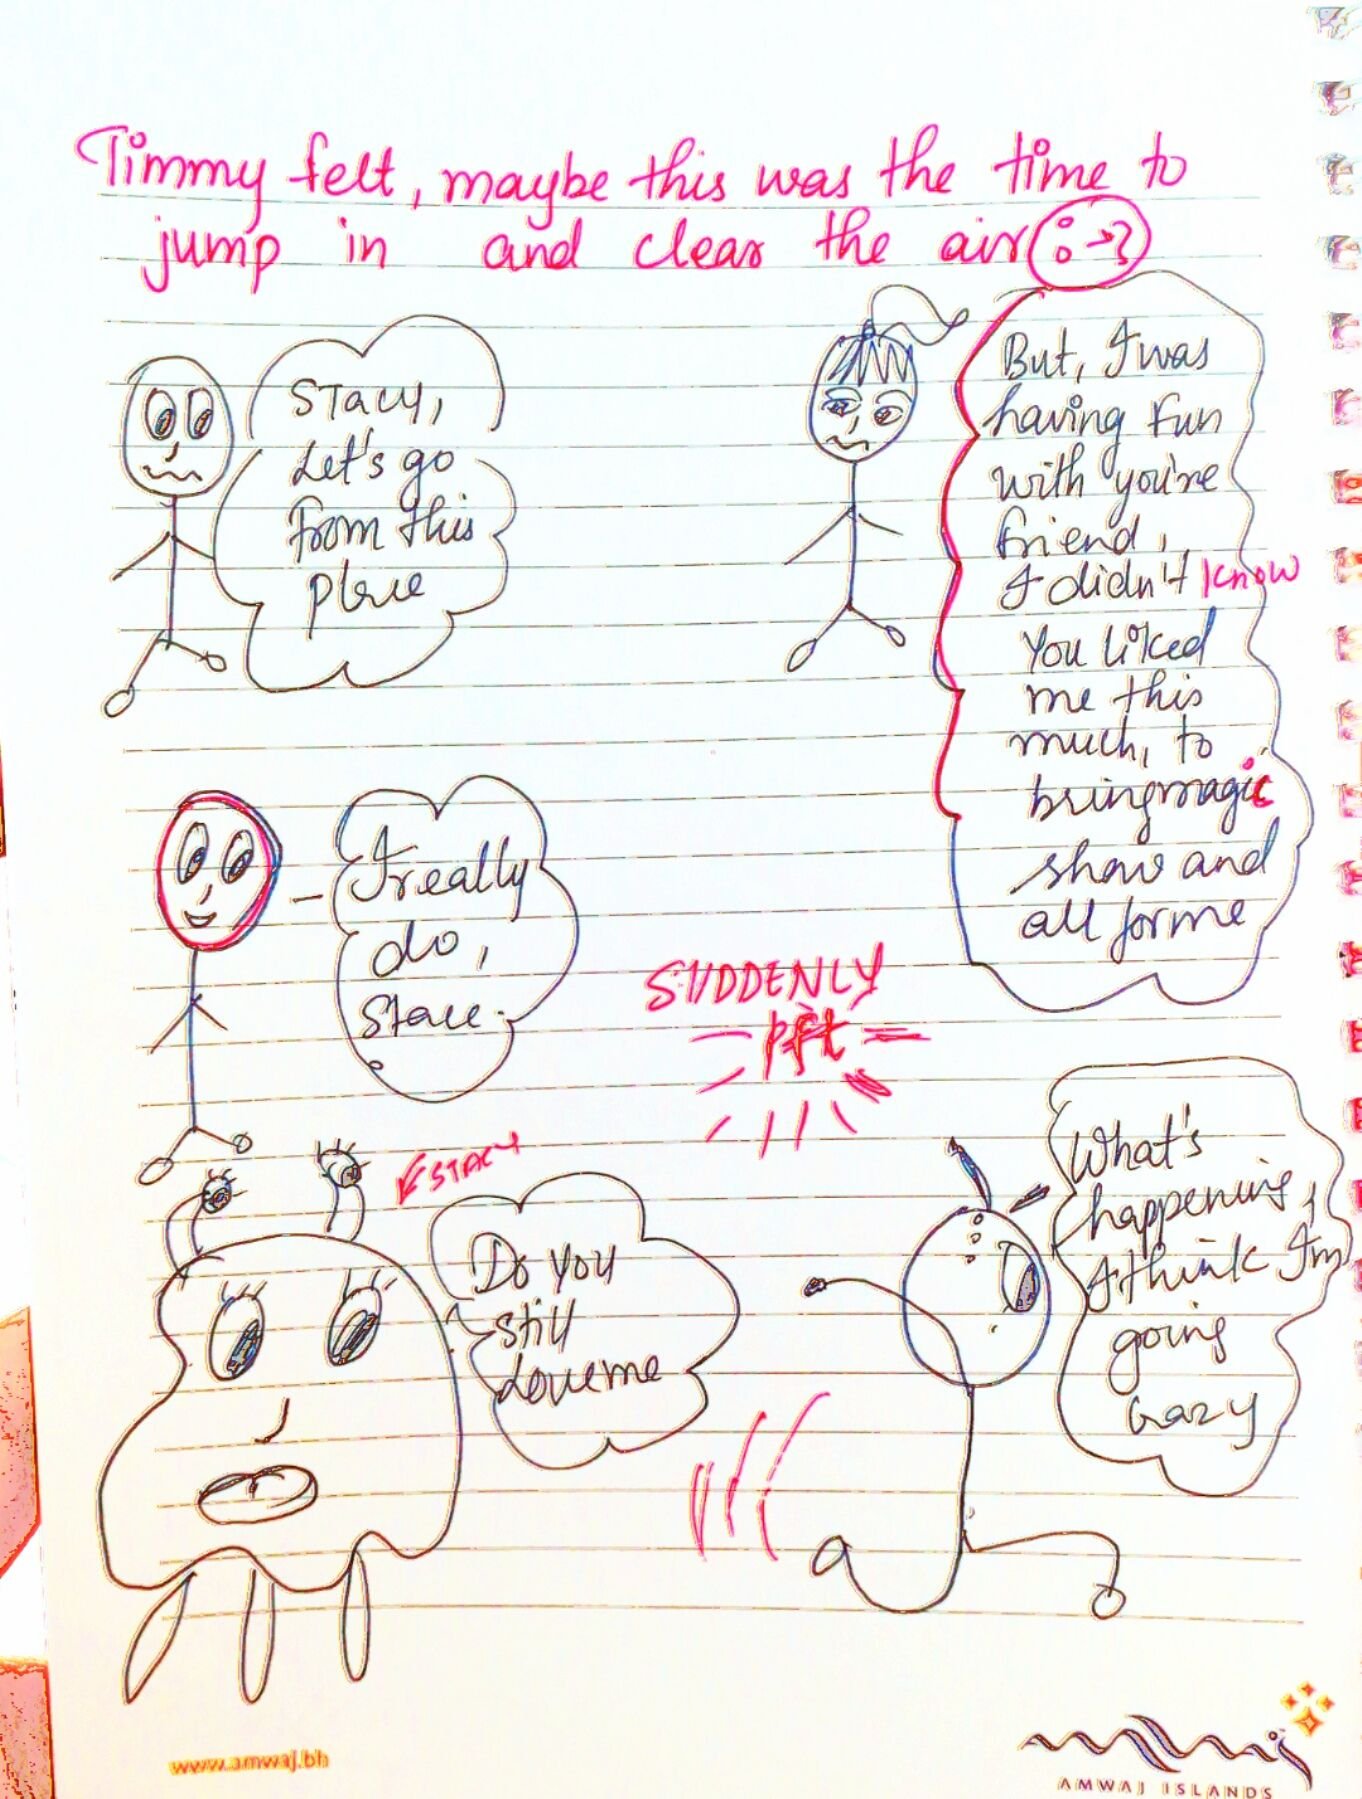 Timmy felt, maybe this was the time to
jump in and clear the air
STACY,
Let's go
from this
place
But, I was
having fun
with you're
friend,
I didn't know
You liked
me this
much, to
bring magic
show and
all for me
I really
do,
Stace.
SUDDENLY
pft
STACY
Do you
still
Love me
What's
happening,
I think I'm
going
crazy
www.amwaj.bh
amwaj
AMWAJ ISLANDS